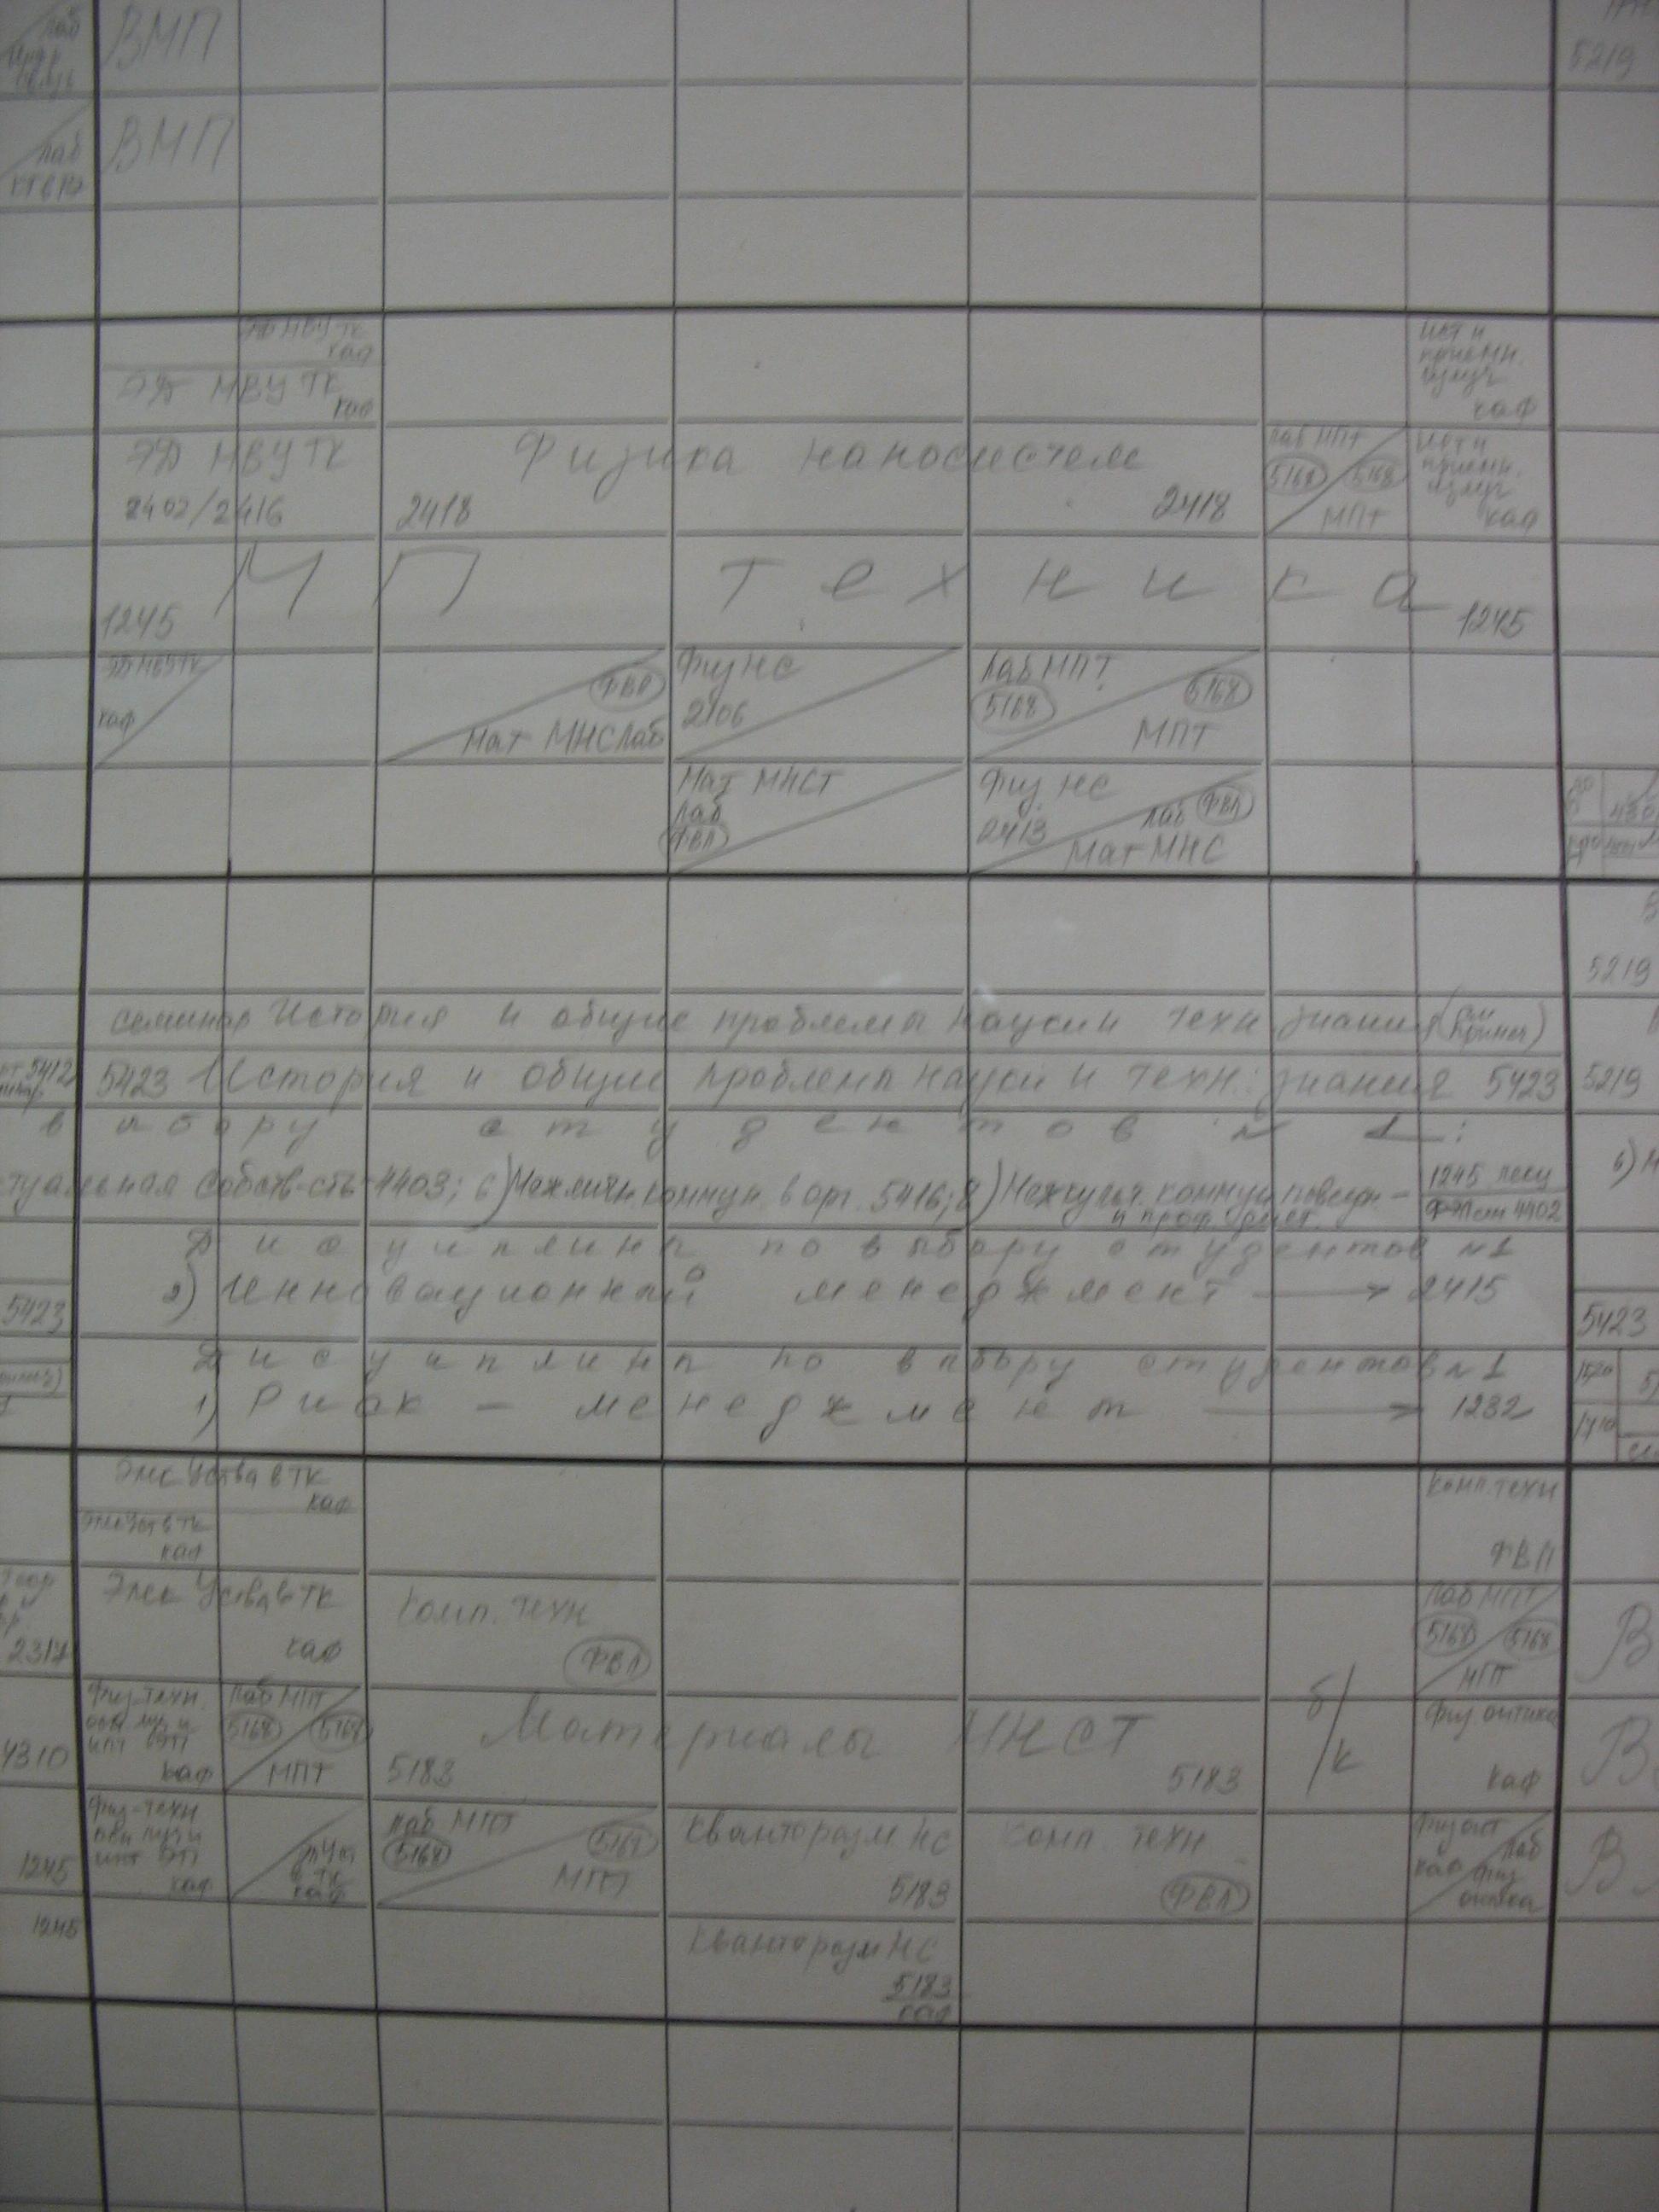 лаб
ВМП
5219
лаб
ВМП
ЭД МВУ ТК
каф
ЭД МВУ ТК
каф
Ист и
приемн.
излуч
каф
ЭД МВУ ТК
2402/2416
Физика наносистем
2418
2418
лаб МПТ
5168
5168
МПТ
Ист и
приемн.
излуч
каф
МП техника
1245
1245
каф
ФВЛ
Мат МНС лаб
Физ НС
2106
Лаб МПТ
5168
5168
МПТ
Мат МНСТ
лаб
ФВЛ
Физ НС
2413
лаб ФВЛ
Мат МНС
5219
семинар История и общие проблемы науки и техн знания (см примеч)
5412
5423 История и общие проблемы науки и техн. знания 5423
5219
выбору студентов №1:
туальная собств-сть-4403; 6) Межличн. коммун. в орг. 5416; 8) Межкульт. коммун. повседн -
и проф
1245 лекц
4402
6)
Дисциплины по выбору студентов №1
2) Инновационный менеджмент → 2415
5423
5423
Дисциплины по выбору студентов №1
1) Риск - менеджмент → 1232
Элек Уства в ТК
каф
каф
Комп. техн
ФВЛ
2317
Элек Уства в ТК
каф
Комп. техн
ФВЛ
Лаб МПТ
5168
5168
В
4310
Физ-техн.
каф
Лаб МПТ
5168
5168
МПТ
Материалы МНСТ
5183
5183
б/к
Физ. оптика
каф
В
1245
Физ-техн
каф
в ТК
каф
лаб МПТ
5168
МПТ
Кванторазм НС
5183
Комп. техн
ФВЛ
каф
лаб
физ
оптика
В
1245
Кванторазм НС
5183
каф